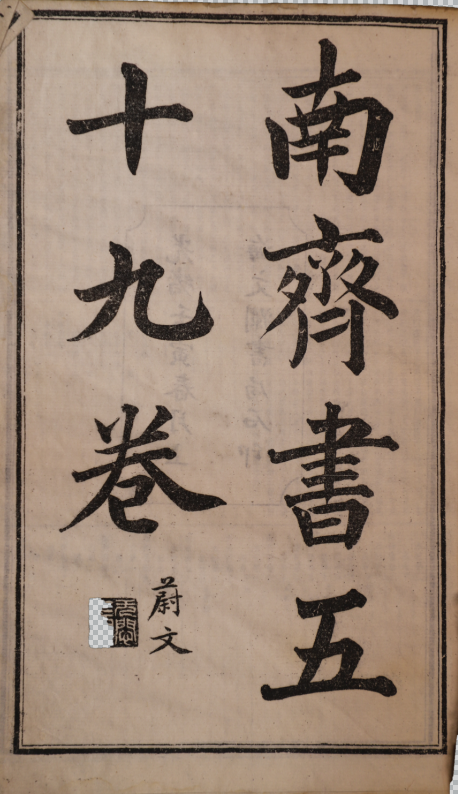 南齊書五
十九卷
蔚文